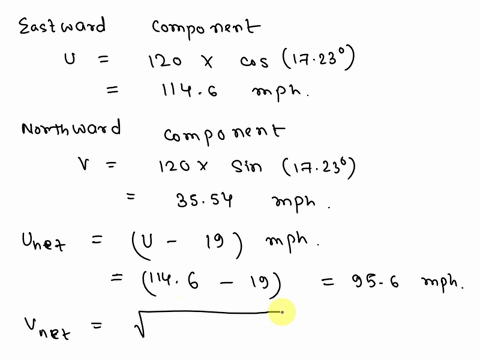 Eastward component
U = 120 x cos (17.23°)
= 114.6 mph.
Northward component
V = 120x sin (17.23°)
= 35.54 mph.
Unet = (U - 19) mph.
= (114.6 - 19) = 95.6 mph.
Vnet = √